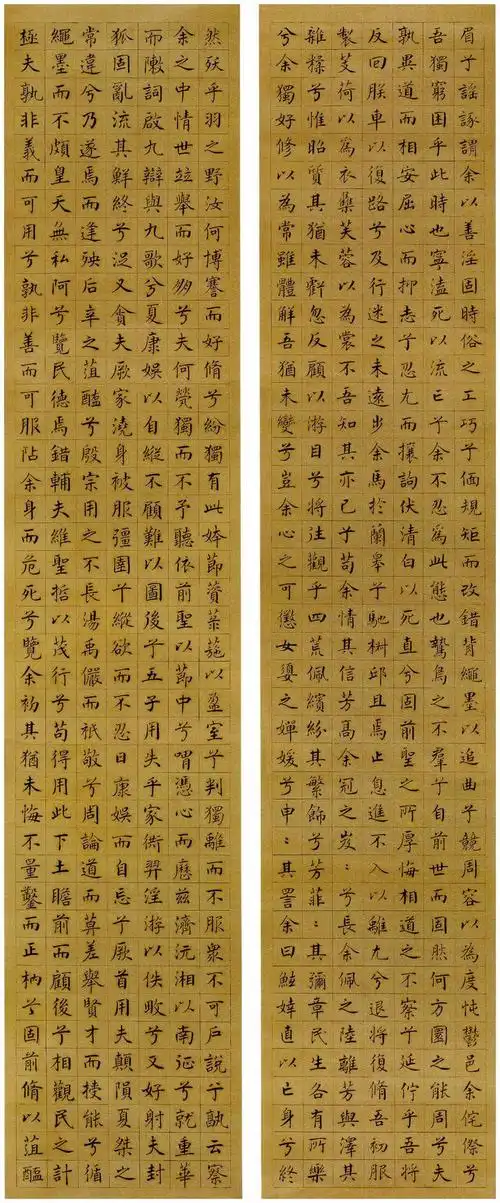 眉兮謠諑謂余以善淫固時俗之工巧兮偭規矩而改錯背繩墨以追曲兮競周容以為度忳鬱邑余侘傺兮
吾獨窮困乎此時也寧溘死以流亡兮余不忍為此態也鷙鳥之不羣兮自前世而固然何方圜之能周兮夫
孰異道而相安屈心而抑志兮忍尤而攘詢伏清白以死直兮固前聖之所厚悔相道之不察兮延佇乎吾將
反回朕車以復路兮及行迷之未遠步余馬於蘭皋兮馳椒邱且焉止息進不入以離尤兮退將復脩吾初服
製芰荷以為衣雧芙蓉以為裳不吾知其亦已兮苟余情其信芳高余冠之岌:兮長余佩之陸離芳與澤其
雜糅兮惟昭質其猶未虧忽反顧以游目兮將往觀乎四荒佩繽紛其繁飾兮芳菲:其彌章民生各有所樂
兮余獨好修以為常雖體解吾猶未變兮豈余心之可懲女嬃之嬋媛兮申:其詈余曰鮌婞直以亡身兮終
然殀乎羽之野汝何博謇而好脩兮紛獨有此姱節薋菉葹以盈室兮判獨離而不服眾不可戶說兮孰云察
余之中情世並舉而好朋兮夫何煢獨而不予聽依前聖以節中兮喟憑心而歷茲濟沅湘以南征兮就重華
而敶詞啟九辯與九歌兮夏康娛以自縱不顧難以圖後兮五子用失乎家衖羿淫游以佚畋兮又好射夫封
狐固亂流其鮮終兮浞又貪夫厥家澆身被服彊圉兮縱欲而不忍日康娛而自忘兮厥首用夫顛隕夏桀之
常違兮乃遂焉而逢殃后辛之菹醢兮殷宗用之不長湯禹儼而祗敬兮周論道而莫差舉賢才而授能兮循
繩墨而不頗皇天無私阿兮覽民德焉錯輔夫維聖哲以茂行兮苟得用此下土瞻前而顧後兮相觀民之計
極夫孰非義而可用兮孰非善而可服阽余身而危死兮覽余初其猶未悔不量鑿而正枘兮固前脩以菹醢